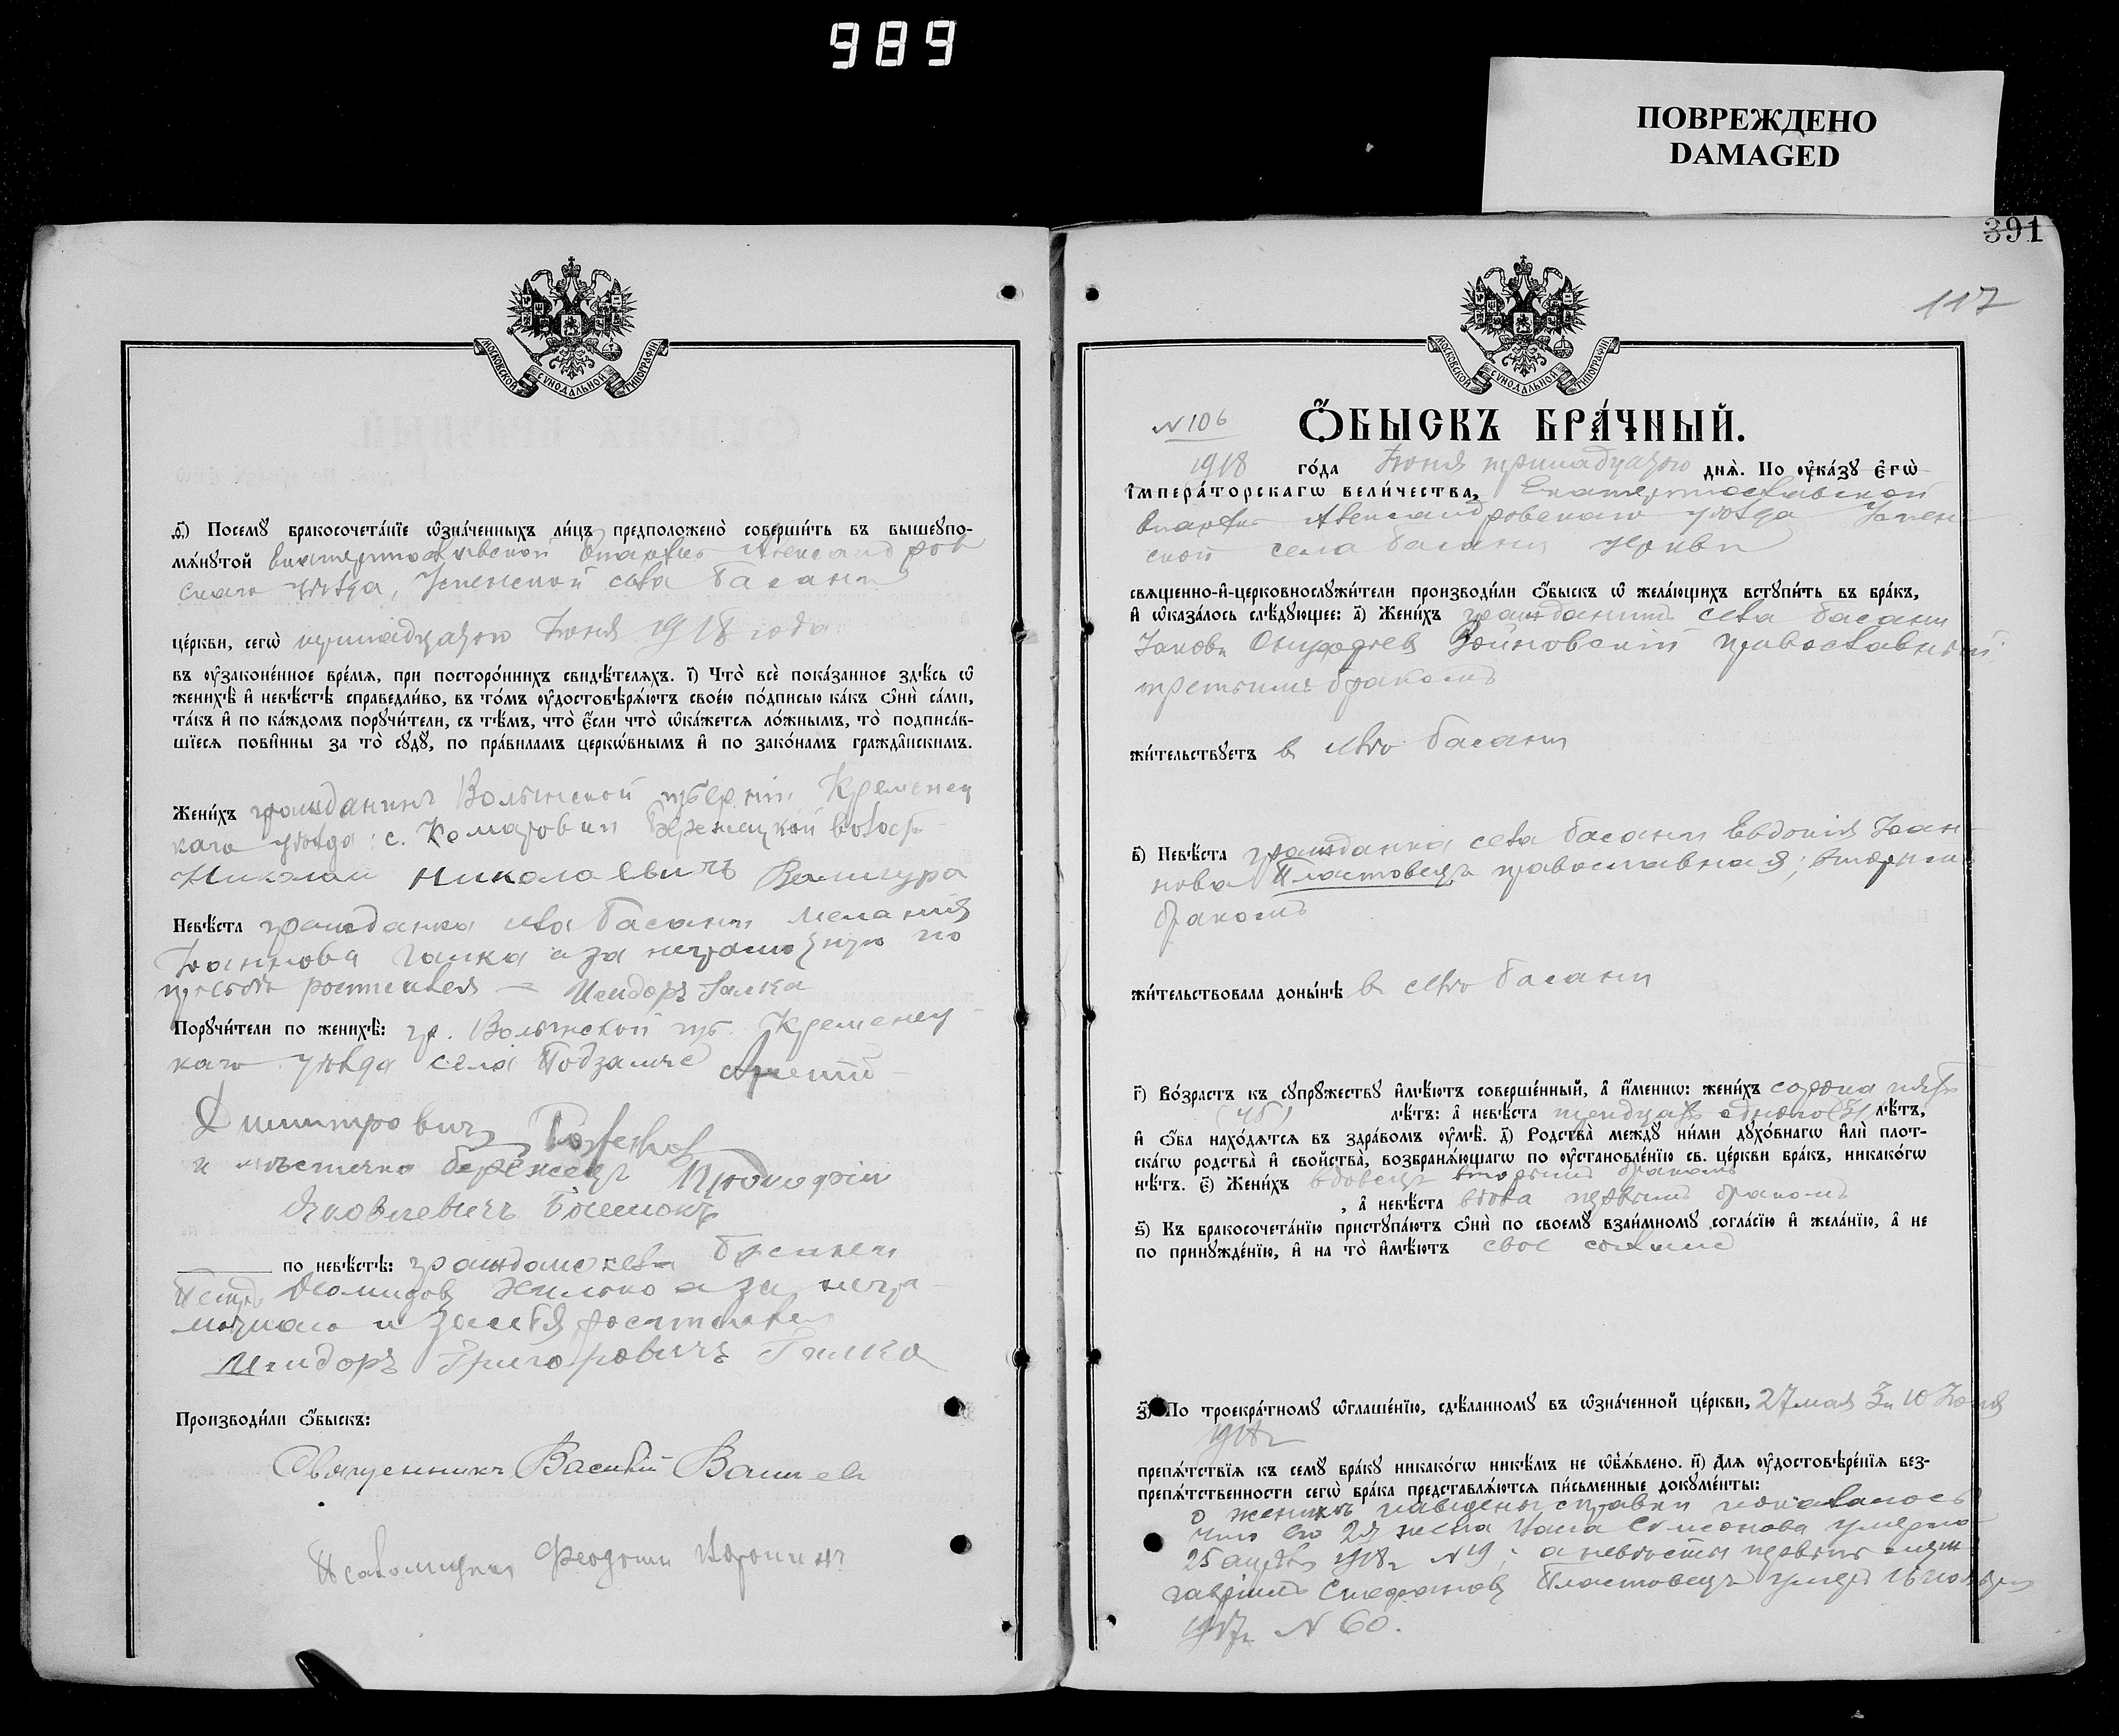 989
ПОВРЕЖДЕНО
DAMAGED
МОСКОВСКОЙ СѴНОДАЛЬНОЙ ТИПОГРАФІИ
Ѳ҃) Посемꙋ бракосочета́нїе ѡ҆зна́ченныхъ ли́цъ предположено̀ соверши́ть въ вышеꙋпо-
мѧ́нꙋтой Екатеринославской Епархіи Александров
скаго уѣзда, Успенской села Басани
це́ркви, сегѡ̀ тринадцатаго Іюня 1918 года
въ ᲂу҆зако́ненное вре́мѧ, при посторо́ннихъ свидѣ́телѧхъ. І҃) Что̀ всѐ пока́занное здѣ́сь ѡ҆
женихѣ̀ и҆ невѣ́стѣ справедли́во, въ то́мъ ᲂу҆достовѣрѧ́ютъ свое́ю по́дписью ка́къ ѻ҆нѝ са́ми,
та́къ и҆ по ка́ждомъ порꙋчи́тели, съ тѣ́мъ, что̀ є҆́сли что̀ ѡ҆ка́жетсѧ ло́жнымъ, то̀ подписа́в-
шїесѧ пови́нны за то̀ сꙋдꙋ̀, по пра́виламъ церкѡ́внымъ и҆ по зако́намъ гражда̑нскимъ.
Жени́хъ гражданинъ Волынской губерніи Кременец
каго уѣзда: с. волост
Николай Николаевичъ
Невѣ́ста гражданка села Басани Меланія
Іоаннова Галка а за неграмотную по
просьбѣ росписался – Исидоръ Галка
Порꙋчи́тели по женихѣ̀: гр. Волынской губ. Кременец
каго уѣзда села Подзамче
Димитровичъ
и мѣстечко Бережецъ Прокофій
Яковлевичъ
по невѣ́стѣ: села Басани
Петръ Демидовъ а за негра
мотнаго и себя росписался
Исидоръ Григоровичъ Галка
Производи́ли ѻ҆́быскъ:
Священникъ Василій
Псаломщикъ Феодосій
391
117
МОСКОВСКОЙ СѴНОДАЛЬНОЙ ТИПОГРАФІИ
N 106
Ѻ҆́БЫСКЪ БРА́ЧНЫЙ.
1918 го́да Іюня тринадцатаго днѧ̀. По ᲂу҆ка́зꙋ є҆гѡ̀
і҆мпера́торскагѡ вели́чества, Екатеринославской
Епархіи Александровскаго уѣзда Успен
ской села Басани церкви
свѧщенно-и҆-церковнослꙋжи́тели производи́ли ѻ҆́быскъ ѡ҆ жела́ющихъ встꙋпи́ть въ бра́къ,
и҆ ѡ҆каза́лось слѣ́дꙋющее: а҃) Жени́хъ гражданинъ села Басани
Іаковъ Онуфріевъ Войновскій православный,
третьимъ бракомъ
жи́тельствꙋетъ въ селѣ Басани
в҃) Невѣ́ста гражданка села Басани Евдокія Іоан
нова Пластовецъ православная; вторымъ
бракомъ
жи́тельствовала доны́нѣ въ селѣ Басани
г҃) Во́зрастъ къ сꙋпрꙋ́жествꙋ и҆мѣ́ютъ соверше́нный, а҆ и҆́меннѡ: жени́хъ сорока пять
(45) лѣ́тъ: а҆ невѣ́ста тридцать одного (31) лѣ́тъ,
и҆ ѻ҆́ба нахо́дѧтсѧ въ здра́вомъ ᲂу҆мѣ̀. д҃) Родства̀ междꙋ̀ ни́ми дꙋхо́внагѡ и҆лѝ плот-
ска́гѡ родства̀ и҆ сво́йства̀, возбранѧ́ющагѡ по ᲂу҆становле́нїю св. це́ркви бра́къ, никако́гѡ
нѣ́тъ. є҃) Жени́хъ вдовецъ вторымъ бракомъ
, а҆ невѣ́ста вдова первымъ бракомъ
ѕ҃) Къ бракосочета́нїю пристꙋпа́ютъ ѻ҆нѝ по своемꙋ̀ взаи́мномꙋ согла́сїю и҆ жела́нїю, а҆ не
по принꙋжде́нїю, и҆ на то̀ и҆мѣ́ютъ свое согласіе
з҃) По троекра́тномꙋ ѡ҆глаше́нїю, сдѣ́ланномꙋ въ ѡ҆зна́ченной це́ркви, 27 мая 3 и 10 Іюня
1918 г.
препѧ́тствїѧ къ семꙋ̀ бра́кꙋ никако́гѡ никѣ́мъ не ѡ҆б̾ѧ́влено. и҃) Длѧ ᲂу҆достовѣре́нїѧ без-
препѧ́тственности сегѡ̀ бра́ка представлѧ́ютсѧ пи́сьменные докꙋме́нты:
о женихѣ наведены справки показалось
что его 2я жена Симеонова умерла
25 1918 г. N 19; а невѣсты первый муж
Гавріилъ Стефановъ Пластовецъ умеръ 16
1917 г. N 60.